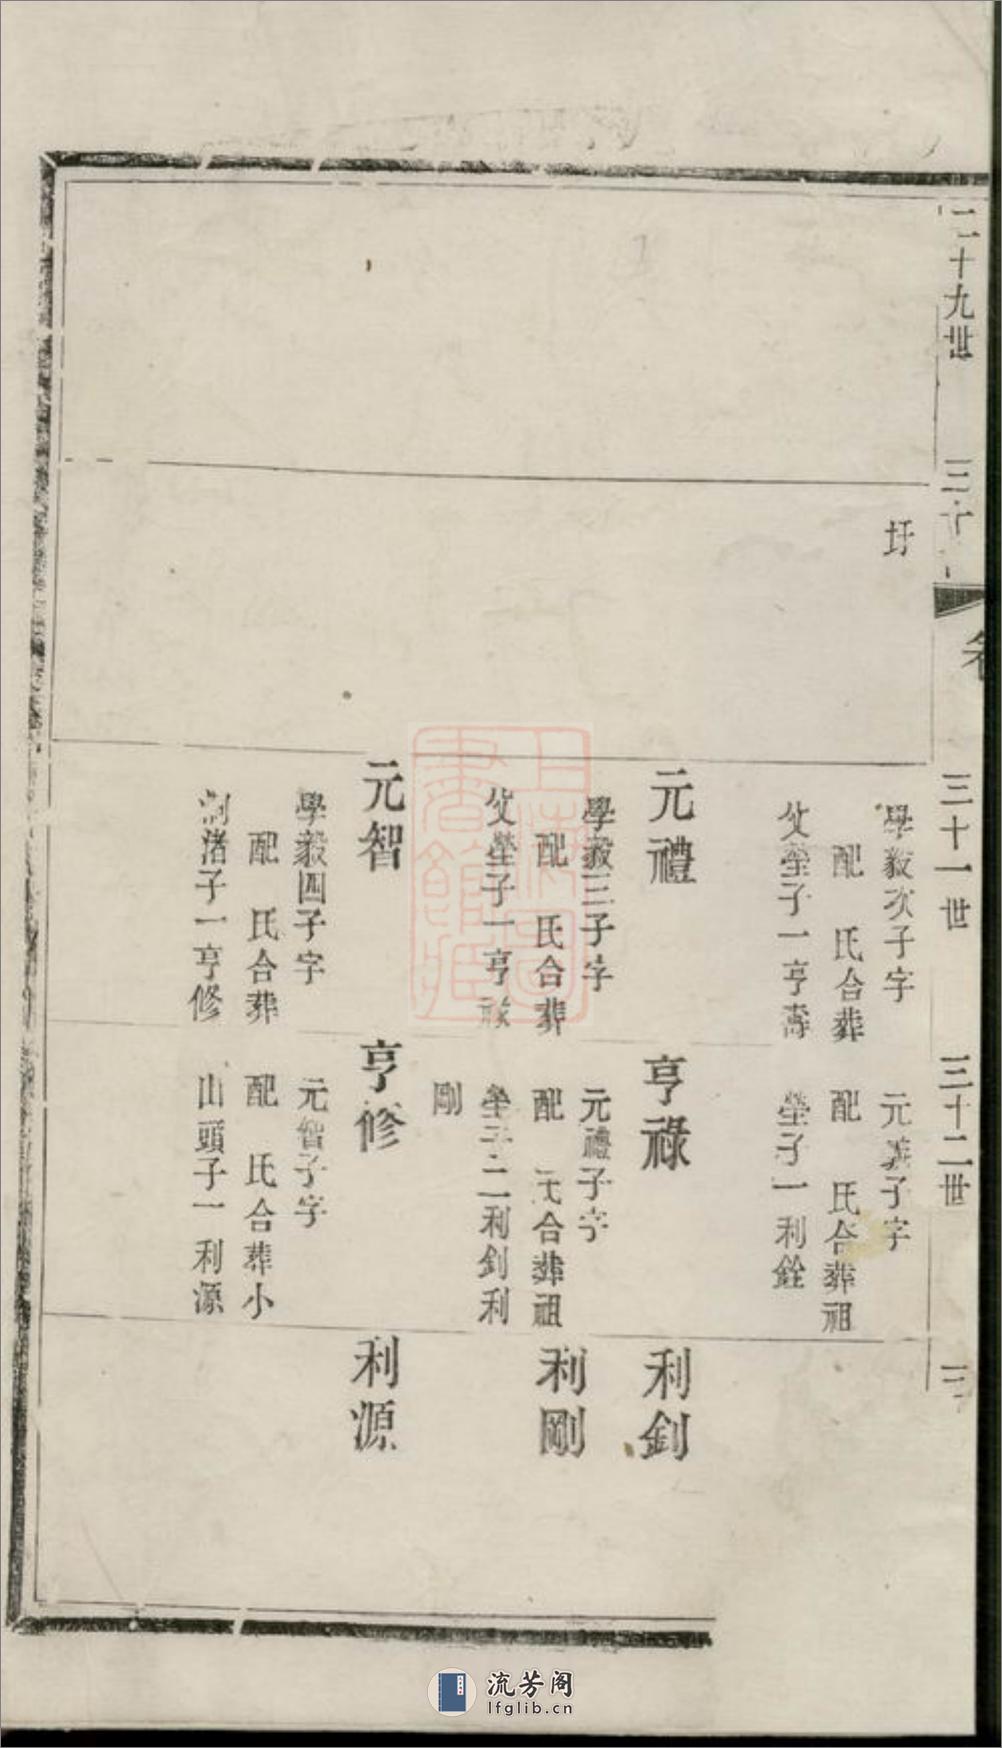 二十九世
三十
圩
三十一世
學毅次子字
配　氏合葬
父塋子一亨壽
元禮
學毅三子字
配　氏合葬
父塋子一亨祿
元智
學毅四子字
配　氏合葬
渚子一亨修
三十二世
元義子字
配　氏合葬祖
塋子一利銓
亨祿
元禮子字
配　氏合葬祖
塋子二利釗利
剛
亨修
元智子字
配　氏合葬小
山頭子一利源
利釗
利剛
利源
上海圖書館藏
流芳阁
lfglib.cn